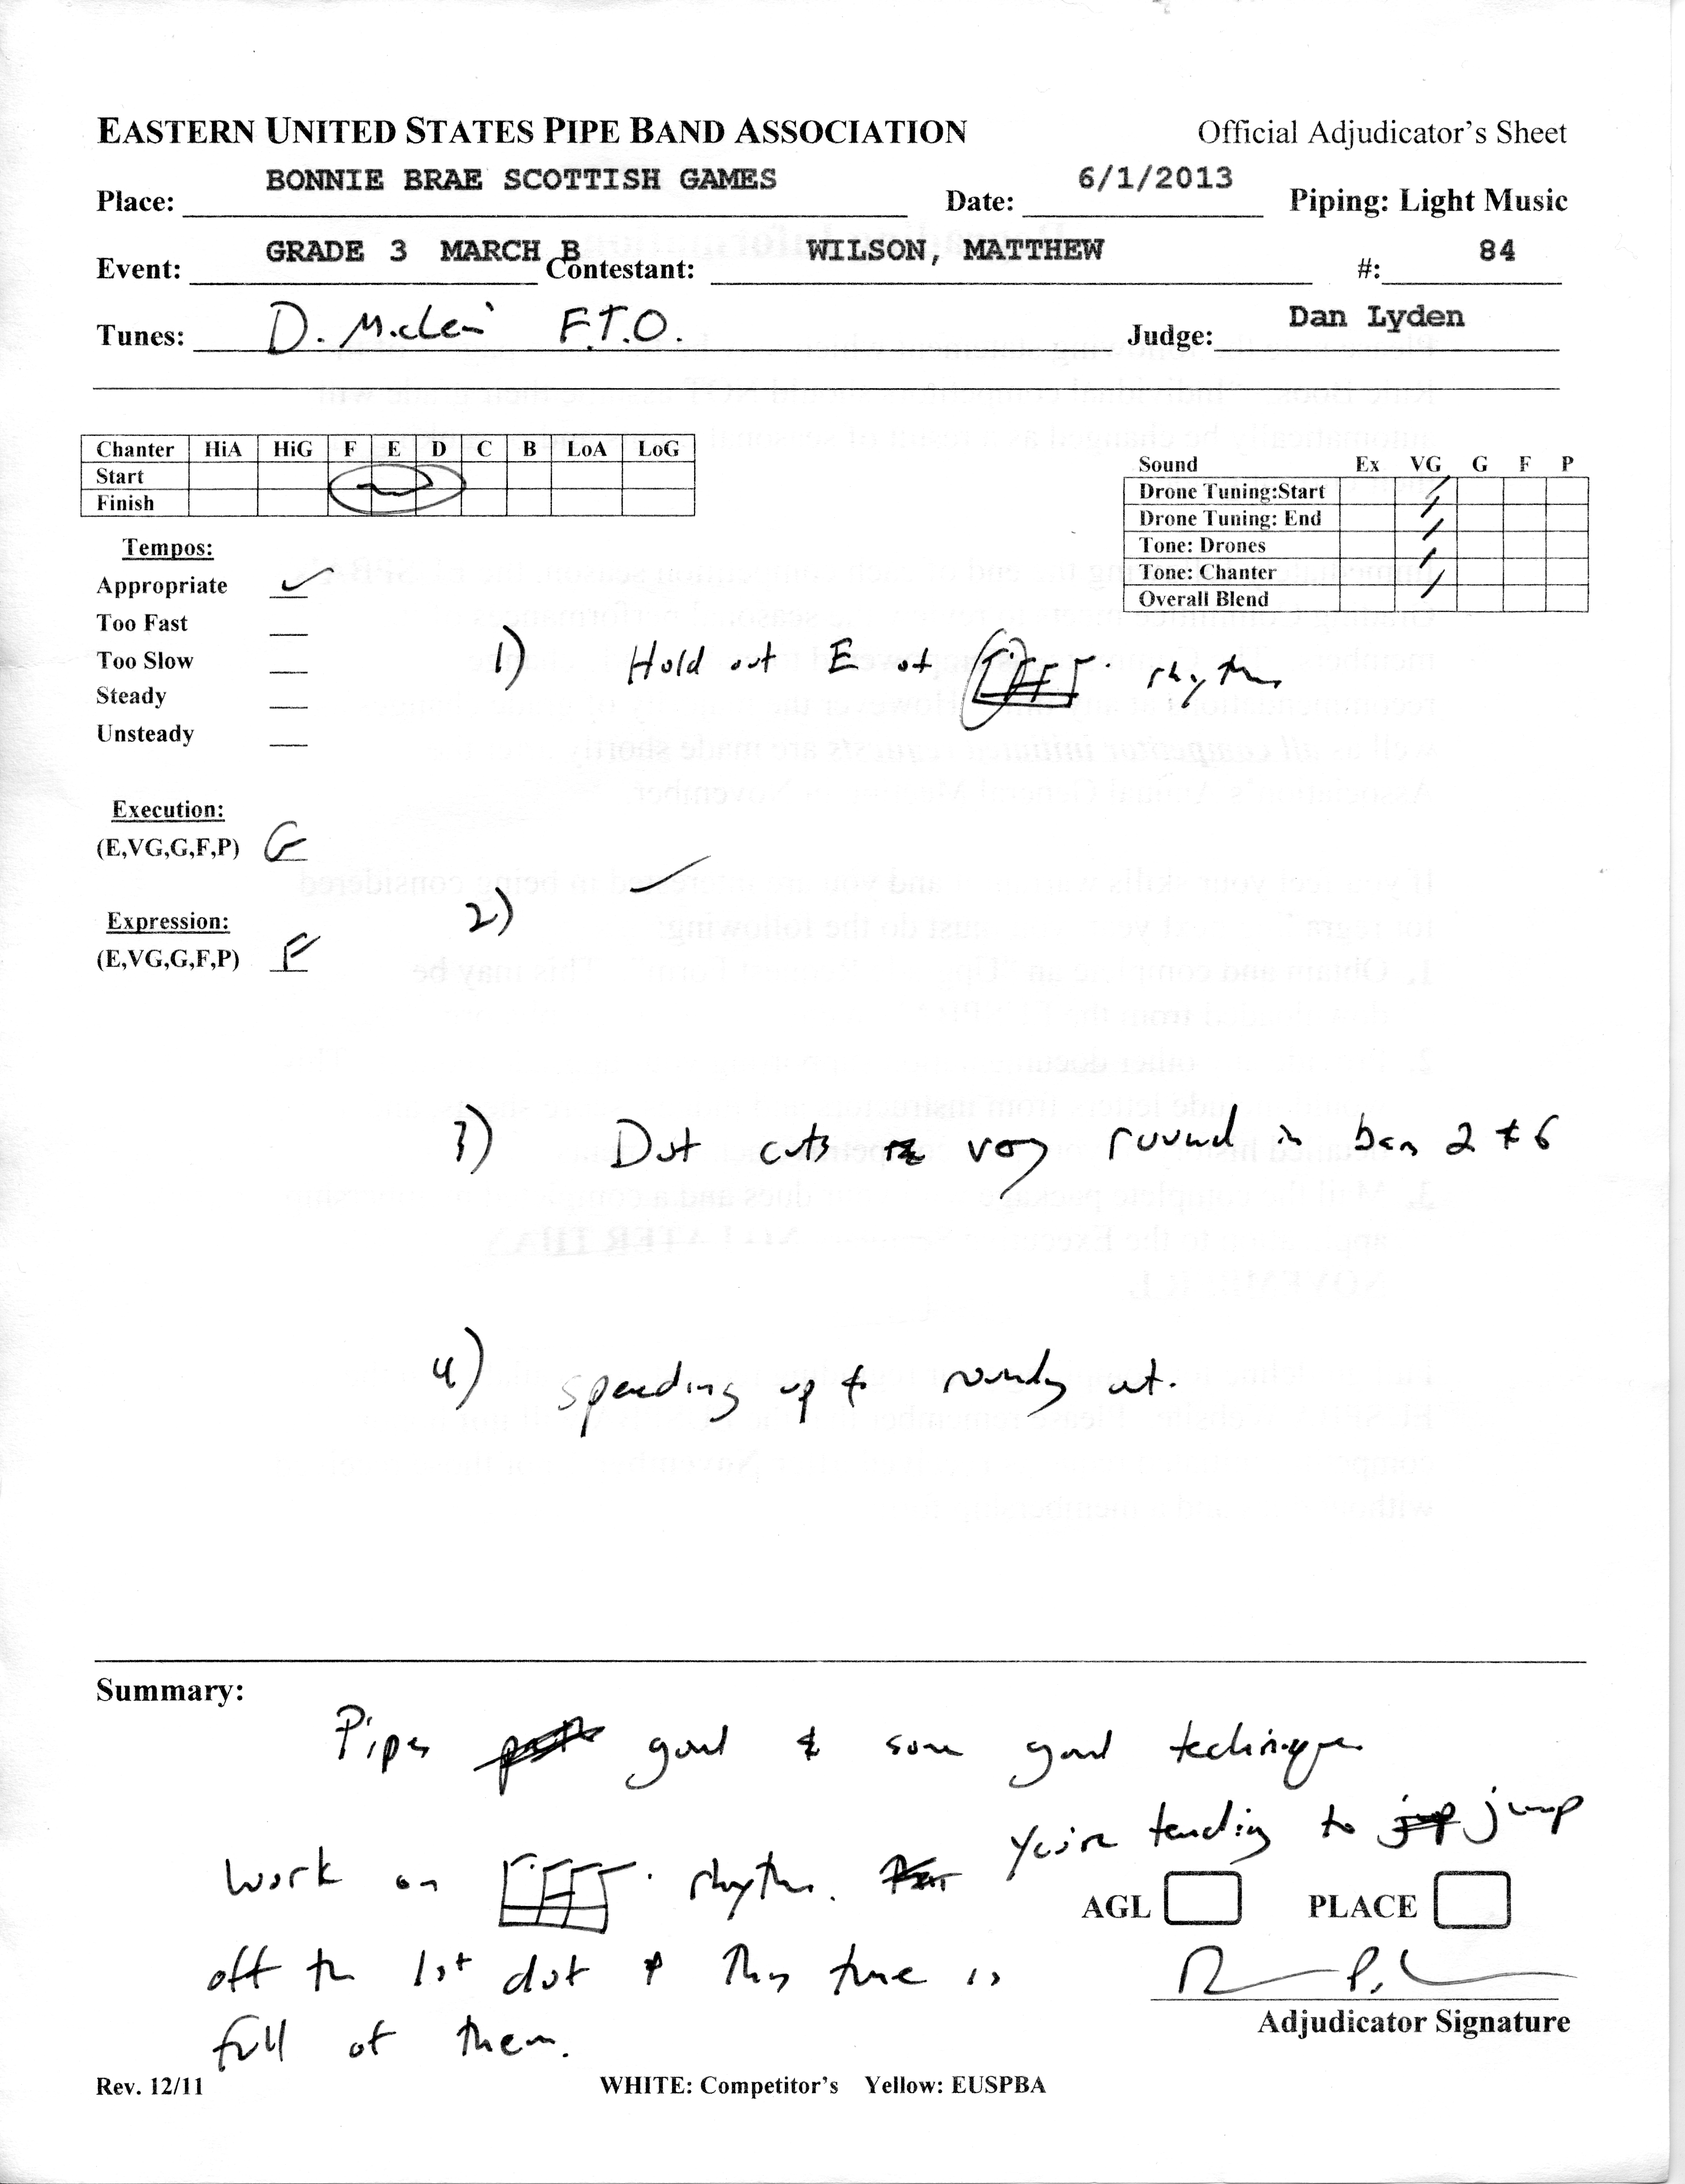 EASTERN UNITED STATES PIPE BAND ASSOCIATION Official Adjudicator's Sheet
Place: BONNIE BRAE SCOTTISH GAMES Date: 6/1/2013 Piping: Light Music
Event: GRADE 3 MARCH B Contestant: WILSON, MATTHEW #: 84
Tunes: D. F.T.O. Judge: Dan Lyden
Chanter HiA HiG F E D C B LoA LoG
Start
Finish
Sound Ex VG G F P
Drone Tuning:Start
Drone Tuning: End
Tone: Drones
Tone: Chanter
Overall Blend
Tempos:
Appropriate ✓
Too Fast
Too Slow
Steady
Unsteady
1) Hold out E at rhythm
Execution:
(E,VG,G,F,P) G
2) ✓
Expression:
(E,VG,G,F,P) F
3) Dot cuts very round in bars 2 & 6
4) speeding up & rounding out.
Summary:
Pipes good & some good technique
Work on rhythm. You're tending to jump
off the 1st dot & This tune is
full of them.
AGL PLACE
Adjudicator Signature
Rev. 12/11 WHITE: Competitor's Yellow: EUSPBA